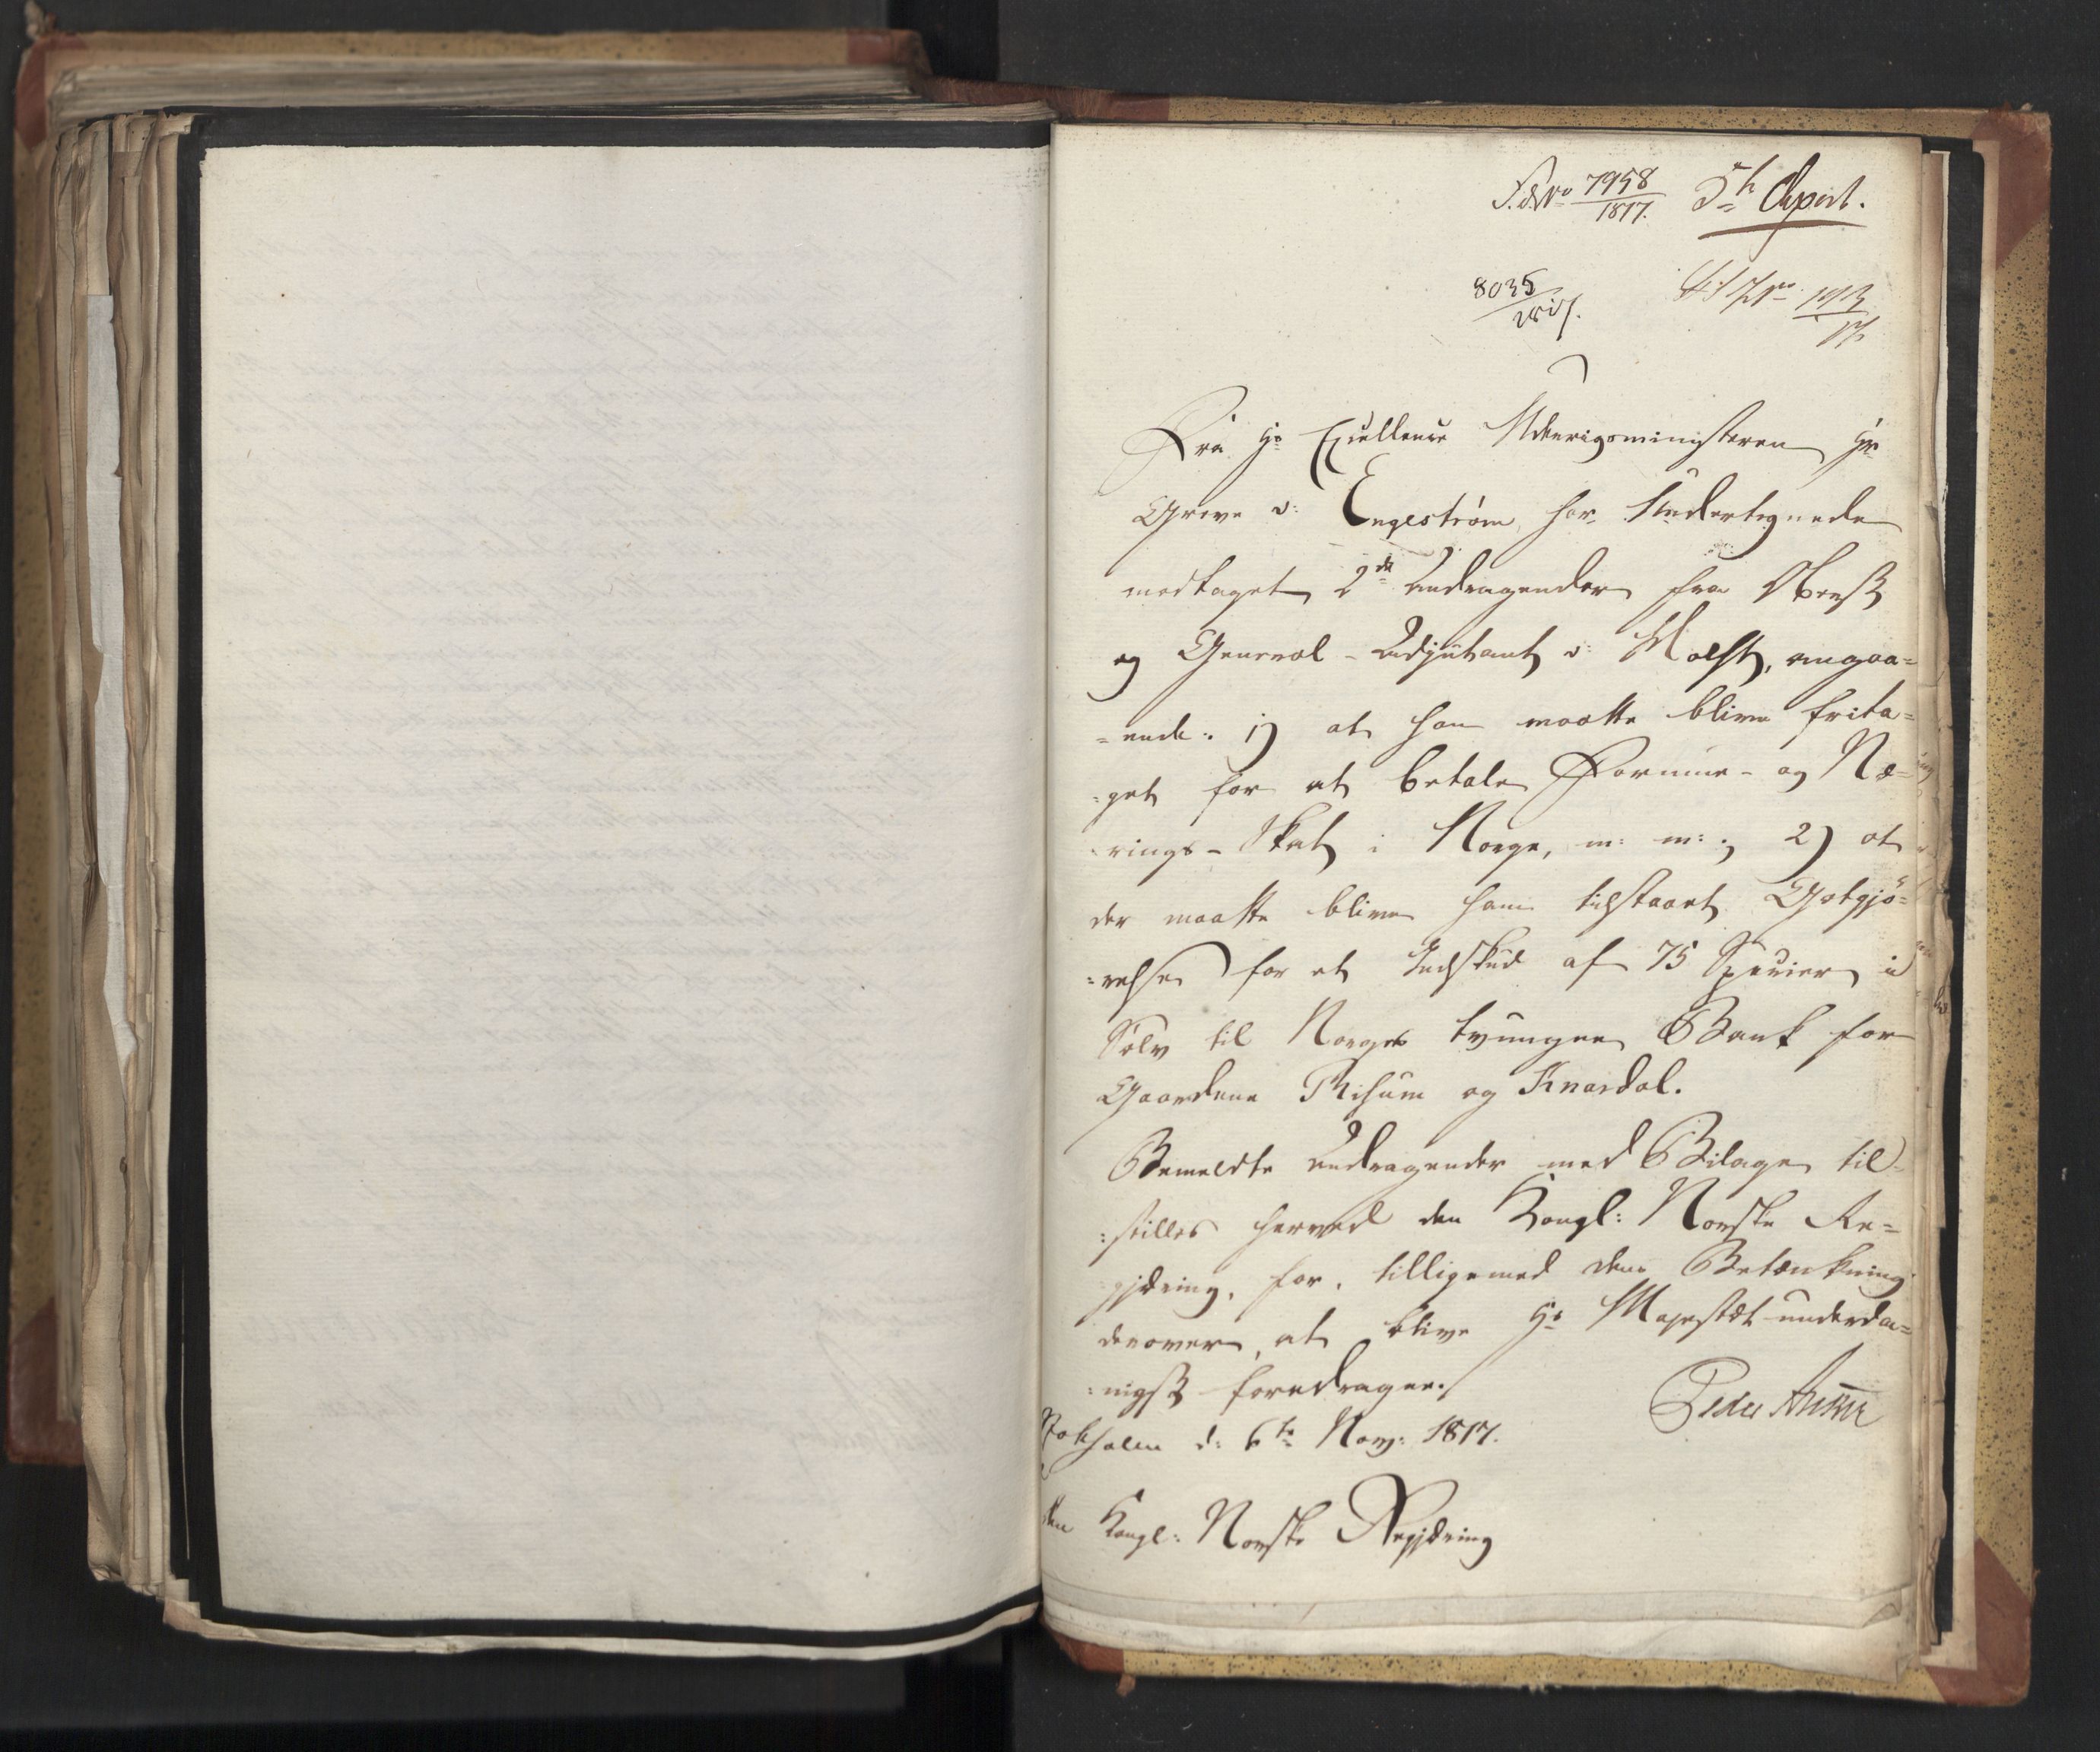 7958/1817. 5te Depart.
8035/1817.
Fra Hs Excellence Udenrigsministeren Hr
Greve v: Engestrøm, har Undertegnede
modtaget 2de Andragender fra Oberst
og General-Adjutant v: Holst, angaa=
=ende: 1) at han maatte blive frita=
=get for at betale Formue- og Næ=
=rings-Skat i Norge, m: m:; 2) at
der maatte blive ham tilstaaet Godtgjö=
=relse for et Indskud af 75 Specier i
Sølv til Norges tvungne Bank for
Gaardene Risum og Knardal.
Bemeldte Andragender med Bilage til=
=stilles herved den Kongl: Norske Re=
gjering, for, tilligemed dens Betænkning
derover, at blive Hs Majestæt underda=
=nigst foredragne.
Stokholm d: 6te Nov: 1817.
Peder Anker
den Kongl: Norske Regjering